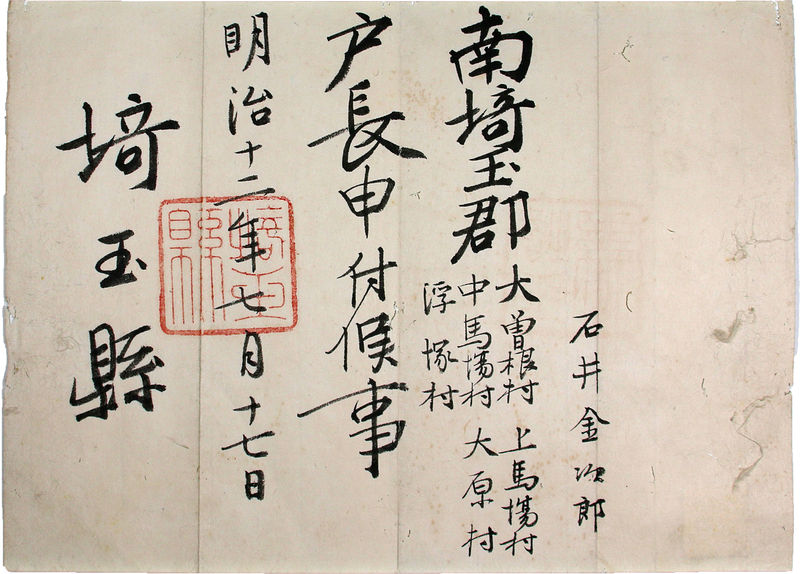 石井金次郎
南埼玉郡
大曽根村 上馬塲村
中馬塲村 大原村
浮塚村
戸長申付候事
明治十二年七月十七日
埼玉縣
埼玉縣